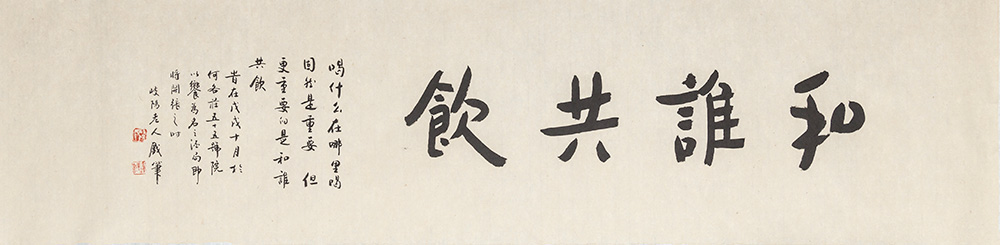 和誰共飲
喝什么在哪里喝
固然是重要但
更重要的是和誰
共飲
岁在戊戌十月於
何各莊五十五號院
以饗為名之酒肆即
將開張之时
岐陽老人戲筆